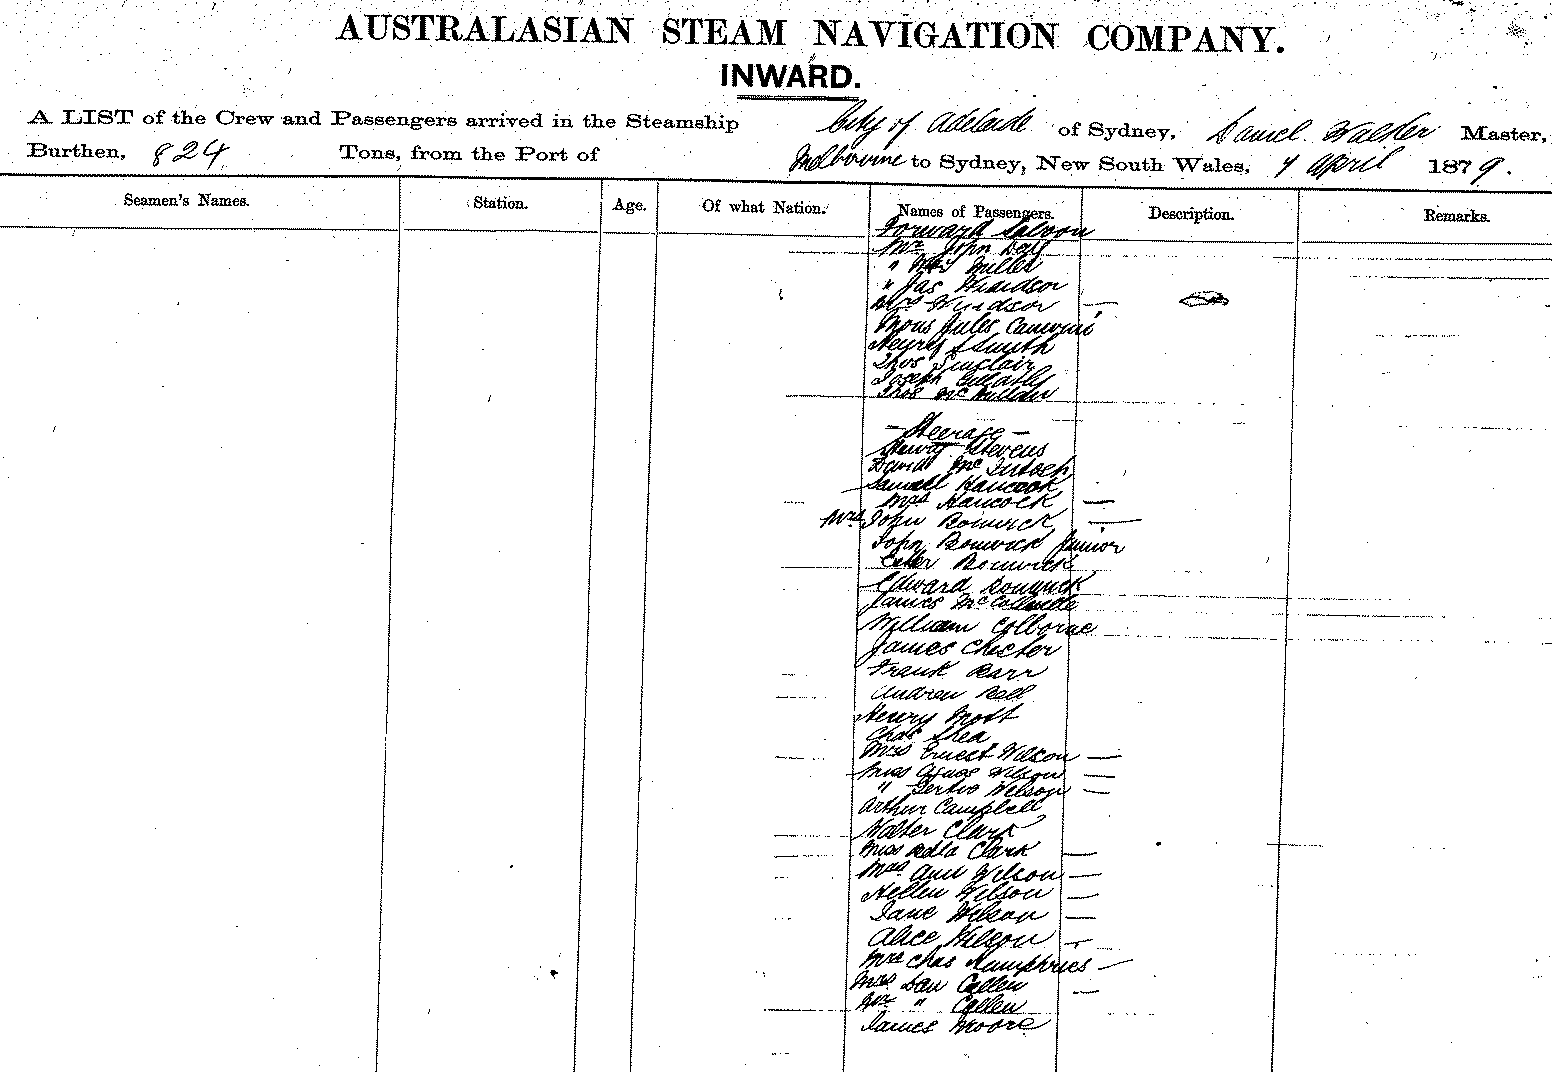 AUSTRALASIAN STEAM NAVIGATION COMPANY.
INWARD.
A LIST of the Crew and Passengers arrived in the Steamship City of Adelaide of Sydney, Daniel Walker Master,
Burthen, 824 Tons, from the Port of Melbourne to Sydney, New South Wales, 7 April 1879.
Seamen's Names. Station. Age. Of what Nation. Names of Passengers. Description. Remarks.
Forward Saloon
Mr John
" Miller
" Jas Windsor
Mrs Windsor —
Mons Jules
Henry Smith
Thos Sinclair
Joseph
Thos McMillan
— Steerage —
Henry Stevens
David McIntosh
Samuel Hancock
Mrs Hancock —
Mrs John Bonwick —
John Bonwick Junior
Bonwick
Edward Bonwick
James
William Colborne
James Chester
Frank Barr
Andrew Bell
Henry Mott
Chas Shea
Mrs Ernest Wilson —
Miss Agnes Wilson —
" Gertie Wilson —
Arthur Campbell
Walter Clark
Miss Clark —
Mrs Ann Wilson —
Hellen Wilson —
Jane Wilson —
Alice Wilson —
Mrs Chas Humphries —
Mrs Dan Callen —
Mr " Callen
James Moore